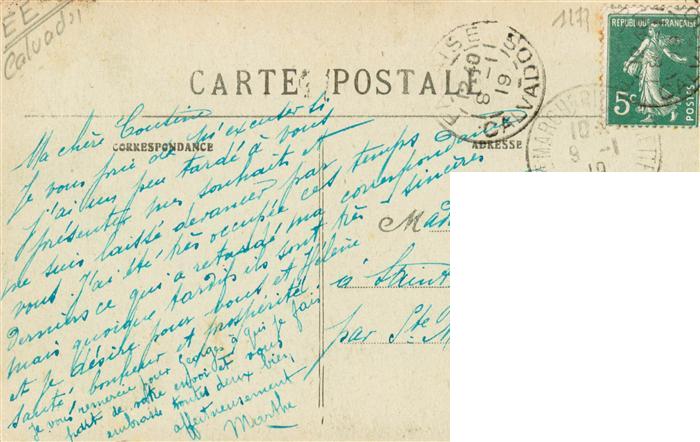 EE
Calvados
1277
CARTE POSTALE
CORRESPONDANCE
ADRESSE
REPUBLIQUE FRANÇAISE
5c
POSTES
CALVADOS
Ma chère Cousine
Je vous prie de m'excuser si
j'ai un peu tardé à vous
présenter mes souhaits et
me suis laissé devancer par
vous. J'ai été très occupée ces temps
derniers ce qui a retardé ma correspondance
mais quoique tardifs ils sont très sincères
et je désire pour vous et Hélène
santé bonheur et prospérité.
Je vous remercie pour Georges à qui je fais
part de votre envoi et vous
embrasse toutes deux bien
affectueusement
Marthe
à Saint
par Ste M